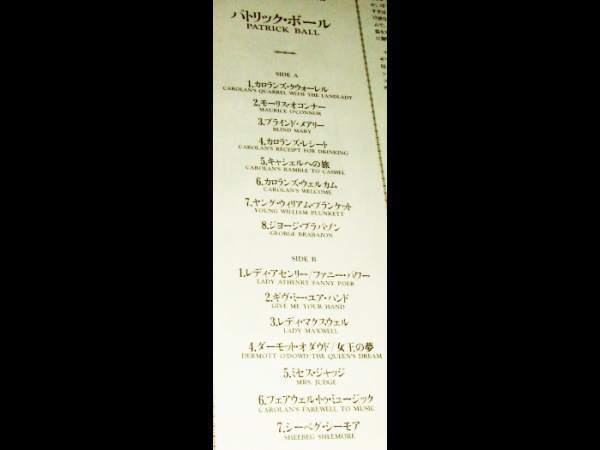 パトリック・ボール
PATRICK BALL
SIDE A
1.カロランズ・クウォーレル
CAROLAN'S QUARREL WITH THE LANDLADY
2.モーリス・オコンナー
MAURICE O'CONNOR
3.ブラインド・メアリー
BLIND MARY
4.カロランズ・レシート
CAROLAN'S RECEIPT FOR DRINKING
5.キャシェルへの旅
CAROLAN'S RAMBLE TO CASHEL
6.カロランズ・ウェルカム
CAROLAN'S WELCOME
7.ヤング・ウィリアム・プランケット
YOUNG WILLIAM PLUNKETT
8.ジョージ・ブラバゾン
GEORGE BRABAZON
SIDE B
1.レディ・アセンリー/ファニー・パワー
LADY ATHENRY/FANNY POER
2.ギヴ・ミー・ユア・ハンド
GIVE ME YOUR HAND
3.レディ・マクスウェル
LADY MAXWELL
4.ダーモット・オダウド/女王の夢
DERMOTT O'DOWD/THE QUEEN'S DREAM
5.ミセス・ジャッジ
MRS. JUDGE
6.フェアウェル・トゥ・ミュージック
CAROLAN'S FAREWELL TO MUSIC
7.シーベグ・シーモア
SHEEBEG SHEEMORE